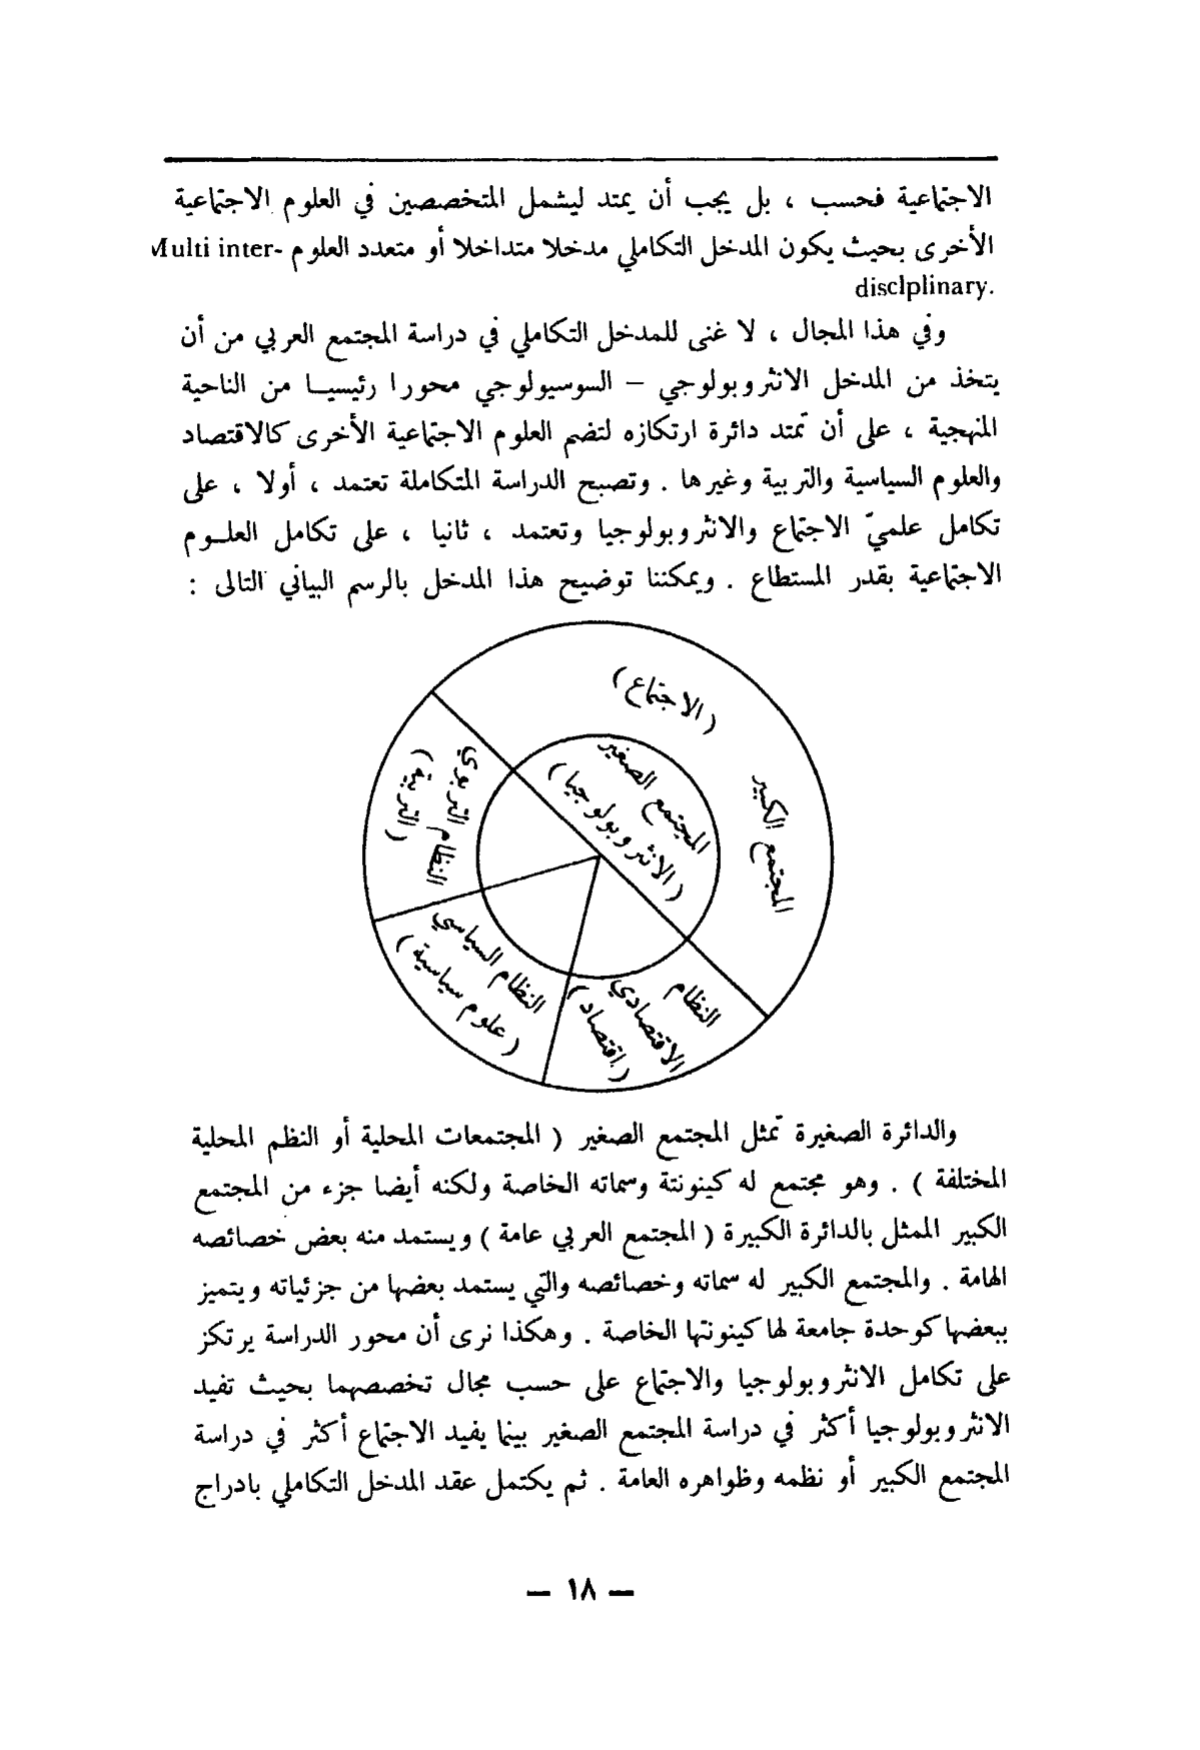 الاجتماعية فحسب ، بل يجب أن يمتد ليشمل المتخصصين في العلوم الاجتماعية
الأخرى بحيث يكون المدخل التكاملي مدخلا متداخلا أو متعدد العلوم Multi inter-
disclplinary.
وفي هذا المجال ، لا غنى للمدخل التكاملي في دراسة المجتمع العربي من أن
يتخذ من المدخل الانثروبولوجي – السوسيولوجي محورا رئيسيا من الناحية
المنهجية ، على أن تمتد دائرة ارتكازه لتضم العلوم الاجتماعية الأخرى كالاقتصاد
والعلوم السياسية والتربية وغيرها . وتصبح الدراسة المتكاملة تعتمد ، أولا ، على
تكامل علميّ الاجتماع والانثروبولوجيا وتعتمد ، ثانيا ، على تكامل العلوم
الاجتماعية بقدر المستطاع . ويمكننا توضيح هذا المدخل بالرسم البياني التالى :
( الاجتماع )
المجتمع الكبير
المجتمع الصغير
( الانثروبولوجيا )
النظام التربوي
( التربية )
النظام السياسي
( علوم سياسية )
النظام
الاقتصادي
( اقتصاد )
والدائرة الصغيرة تمثل المجتمع الصغير ( المجتمعات المحلية أو النظم المحلية
المختلفة ) . وهو مجتمع له كينونتة وسماته الخاصة ولكنه أيضا جزء من المجتمع
الكبير الممثل بالدائرة الكبيرة ( المجتمع العربي عامة ) ويستمد منه بعض خصائصه
الهامة . والمجتمع الكبير له سماته وخصائصه والتي يستمد بعضها من جزئياته ويتميز
ببعضها كوحدة جامعة لها كينونتها الخاصة . وهكذا نرى أن محور الدراسة يرتكز
على تكامل الانثروبولوجيا والاجتماع على حسب مجال تخصصهما بحيث تفيد
الانثروبولوجيا أكثر في دراسة المجتمع الصغير بينما يفيد الاجتماع أكثر في دراسة
المجتمع الكبير أو نظمه وظواهره العامة . ثم يكتمل عقد المدخل التكاملي بادراج
– ١٨ –